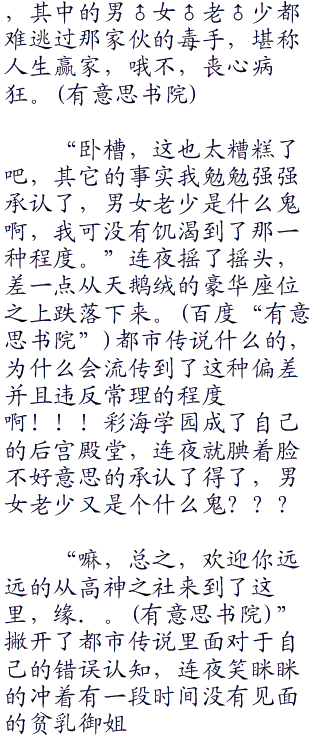 ，其中的男♂女♂老♂少都
难逃过那家伙的毒手，堪称
人生赢家，哦不，丧心病
狂。(有意思书院)
“卧槽，这也太糟糕了
吧，其它的事实我勉勉强强
承认了，男女老少是什么鬼
啊，我可没有饥渴到了那一
种程度。”连夜摇了摇头，
差一点从天鹅绒的豪华座位
之上跌落下来。(百度“有意
思书院”)都市传说什么的，
为什么会流传到了这种偏差
并且违反常理的程度
啊！！！彩海学园成了自己
的后宫殿堂，连夜就腆着脸
不好意思的承认了得了，男
女老少又是个什么鬼？？？
“嘛，总之，欢迎你远
远的从高神之社来到了这
里，缘．。(有意思书院)”
撇开了都市传说里面对于自
己的错误认知，连夜笑眯眯
的冲着有一段时间没有见面
的贫乳御姐